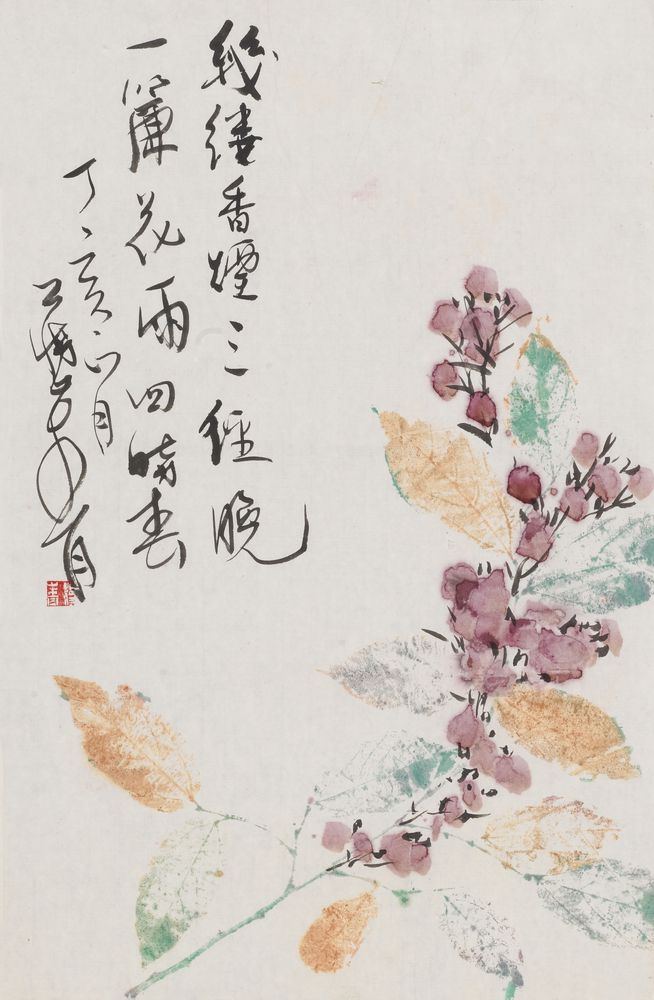 幾縷香煙三經晚
一簾花雨四時春
丁亥六月